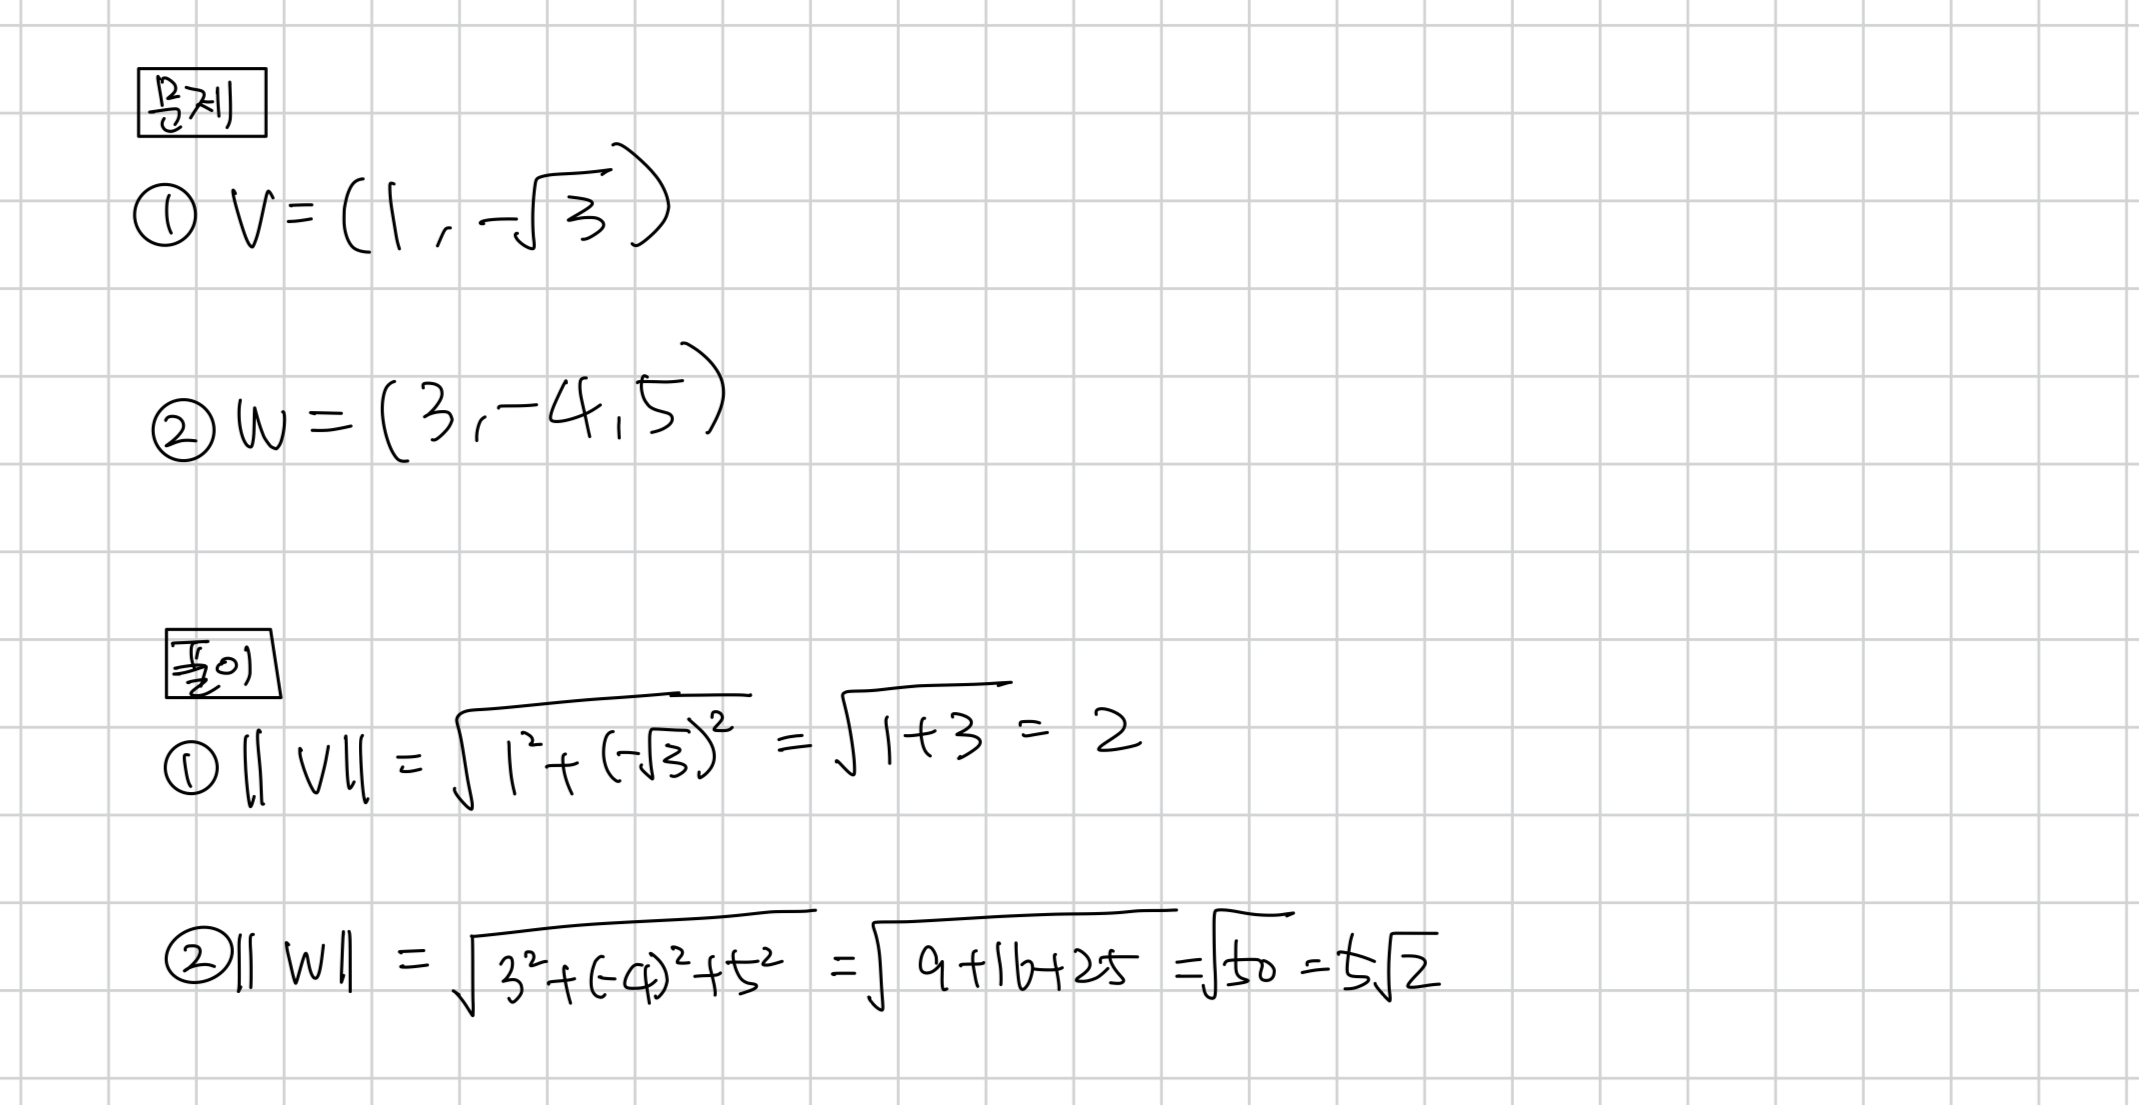 문제
① V = (1, -√3)
② W = (3, -4, 5)
풀이
① ||V|| = √(1² + (-√3)²) = √(1+3) = 2
② ||W|| = √(3² + (-4)² + 5²) = √(9+16+25) = √50 = 5√2